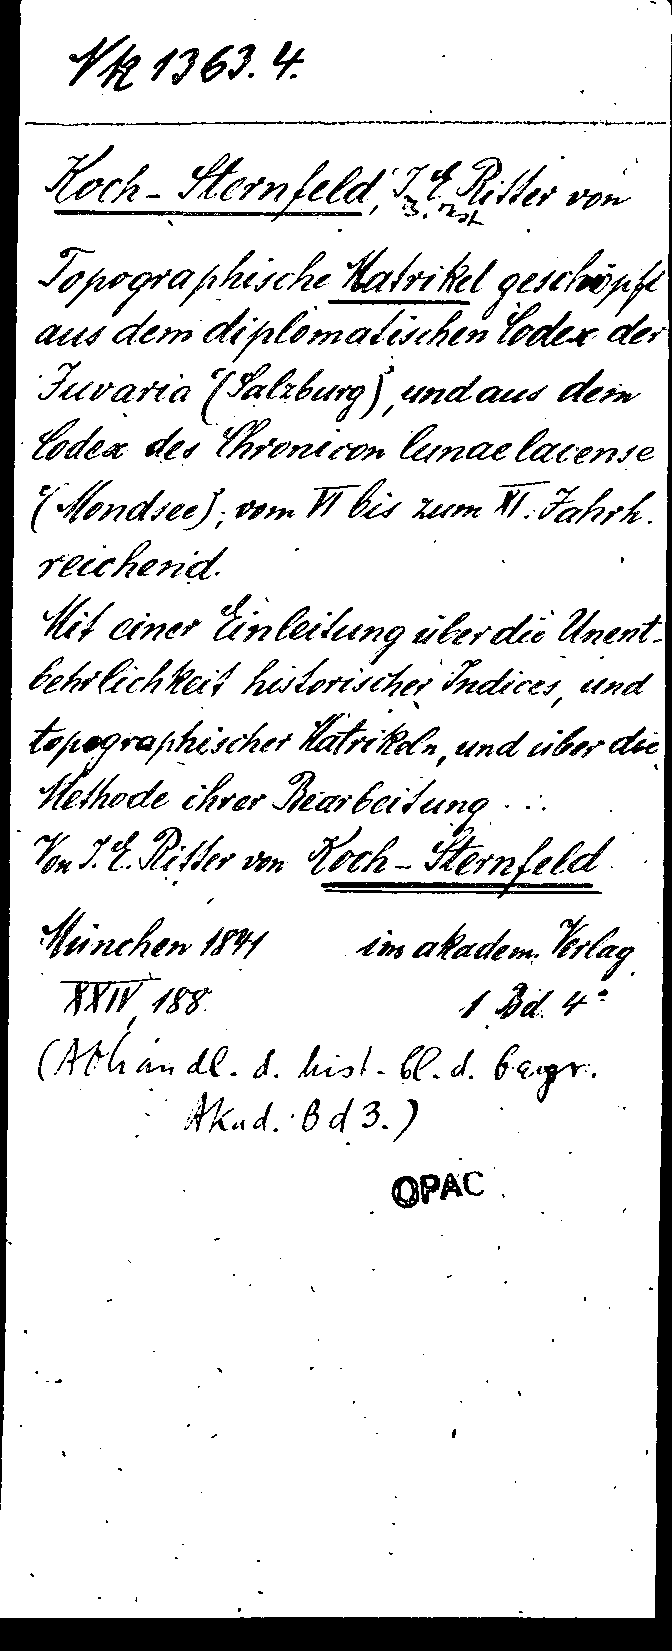 Nk 1363.4.
Koch-Sternfeld, J. E. Ritter von
Topographische Matrikel geschöpft
aus dem diplomatischen Codex der
Juvaria (Salzburg), und aus dem
Codex des Chronicon lunaelacense
(Mondsee); vom VI bis zum XI. Jahrh.
reichend.
Mit einer Einleitung über die Unent-
behrlichkeit historischer Indices, und
topographischer Matrikeln, und über die
Methode ihrer Bearbeitung ...
Von J. E. Ritter von Koch-Sternfeld
München 1841 im akadem. Verlag
XXIV, 188. 1 Bd. 4°
(Abhandl. d. hist. Cl. d. bayr.
Akad. Bd 3.)
OPAC